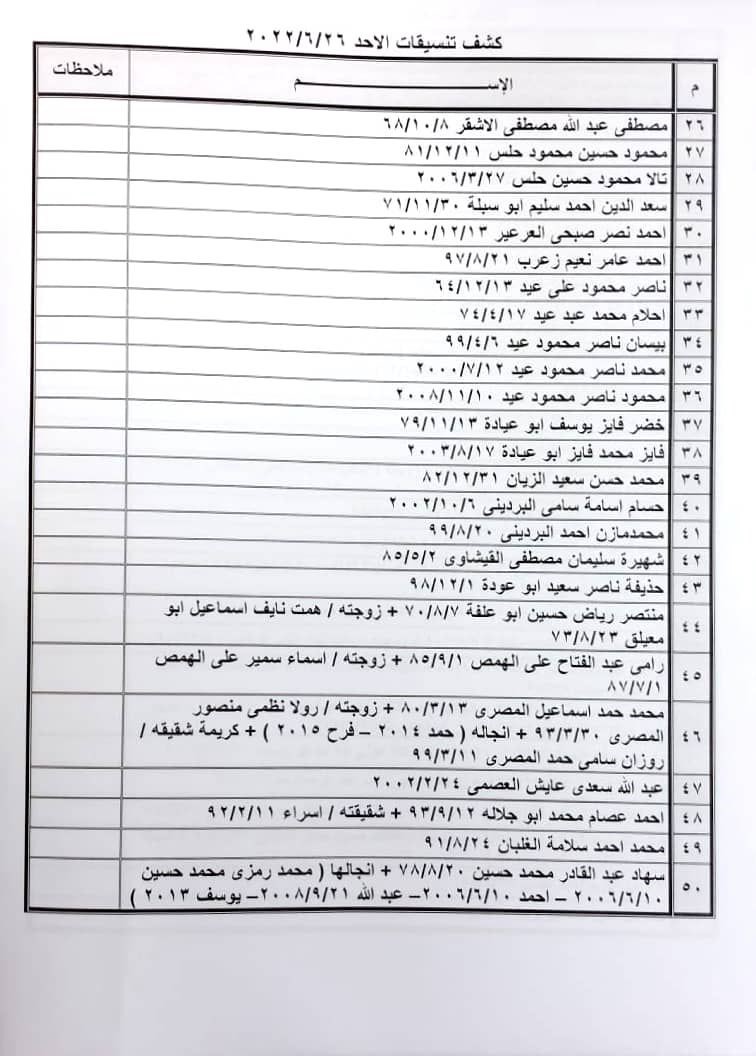 كشف تنسيقات الاحد ٢٠٢٢/٦/٢٦
م الإســـــــــم ملاحظات
٢٦ مصطفى عبد الله مصطفى الاشقر ٦٨/١٠/٨
٢٧ محمود حسين محمود حلس ٨١/١٢/١١
٢٨ تالا محمود حسين حلس ٢٠٠٦/٣/٢٧
٢٩ سعد الدين احمد سليم ابو سبلة ٧١/١١/٣٠
٣٠ احمد نصر صبحى العرعير ٢٠٠٠/١٢/١٣
٣١ احمد عامر نعيم زعرب ٩٧/٨/٢١
٣٢ ناصر محمود على عيد ٦٤/١٢/١٣
٣٣ احلام محمد عبد عيد ٧٤/٤/١٧
٣٤ بيسان ناصر محمود عيد ٩٩/٤/٦
٣٥ محمد ناصر محمود عيد ٢٠٠٠/٧/١٢
٣٦ محمود ناصر محمود عيد ٢٠٠٨/١١/١٠
٣٧ خضر فايز يوسف ابو عيادة ٧٩/١١/١٣
٣٨ فايز محمد فايز ابو عيادة ٢٠٠٣/٨/١٧
٣٩ محمد حسن سعيد الزيان ٨٢/١٢/٣١
٤٠ حسام اسامة سامى البردينى ٢٠٠٢/١٠/٦
٤١ محمدمازن احمد البردينى ٩٩/٨/٢٠
٤٢ شهيرة سليمان مصطفى القيشاوى ٨٥/٥/٢
٤٣ حذيفة ناصر سعيد ابو عودة ٩٨/١٢/١
٤٤ منتصر رياض حسين ابو علفة ٧٠/٨/٧ + زوجته / همت نايف اسماعيل ابو
معيلق ٧٣/٨/٢٣
٤٥ رامى عبد الفتاح على الهمص ٨٥/٩/١ + زوجته / اسماء سمير على الهمص
٨٧/٧/١
٤٦ محمد حمد اسماعيل المصرى ٨٠/٣/١٣ + زوجته / رولا نظمى منصور
المصرى ٩٣/٣/٣٠ + انجاله ( حمد ٢٠١٤ – فرح ٢٠١٥ ) + كريمة شقيقه /
روزان سامى حمد المصرى ٩٩/٣/١١
٤٧ عبد الله سعدى عايش العصمى ٢٠٠٢/٢/٢٤
٤٨ احمد عصام محمد ابو جلاله ٩٣/٩/١٢ + شقيقته / اسراء ٩٢/٢/١١
٤٩ محمد احمد سلامة الغلبان ٩١/٨/٢٤
٥٠ سهاد عبد القادر محمد حسين ٧٨/٨/٢٠ + انجالها ( محمد رمزى محمد حسين
٢٠٠٦/٦/١٠ – احمد ٢٠٠٦/٦/١٠– عبد الله ٢٠٠٨/٩/٢١– يوسف ٢٠١٣ )